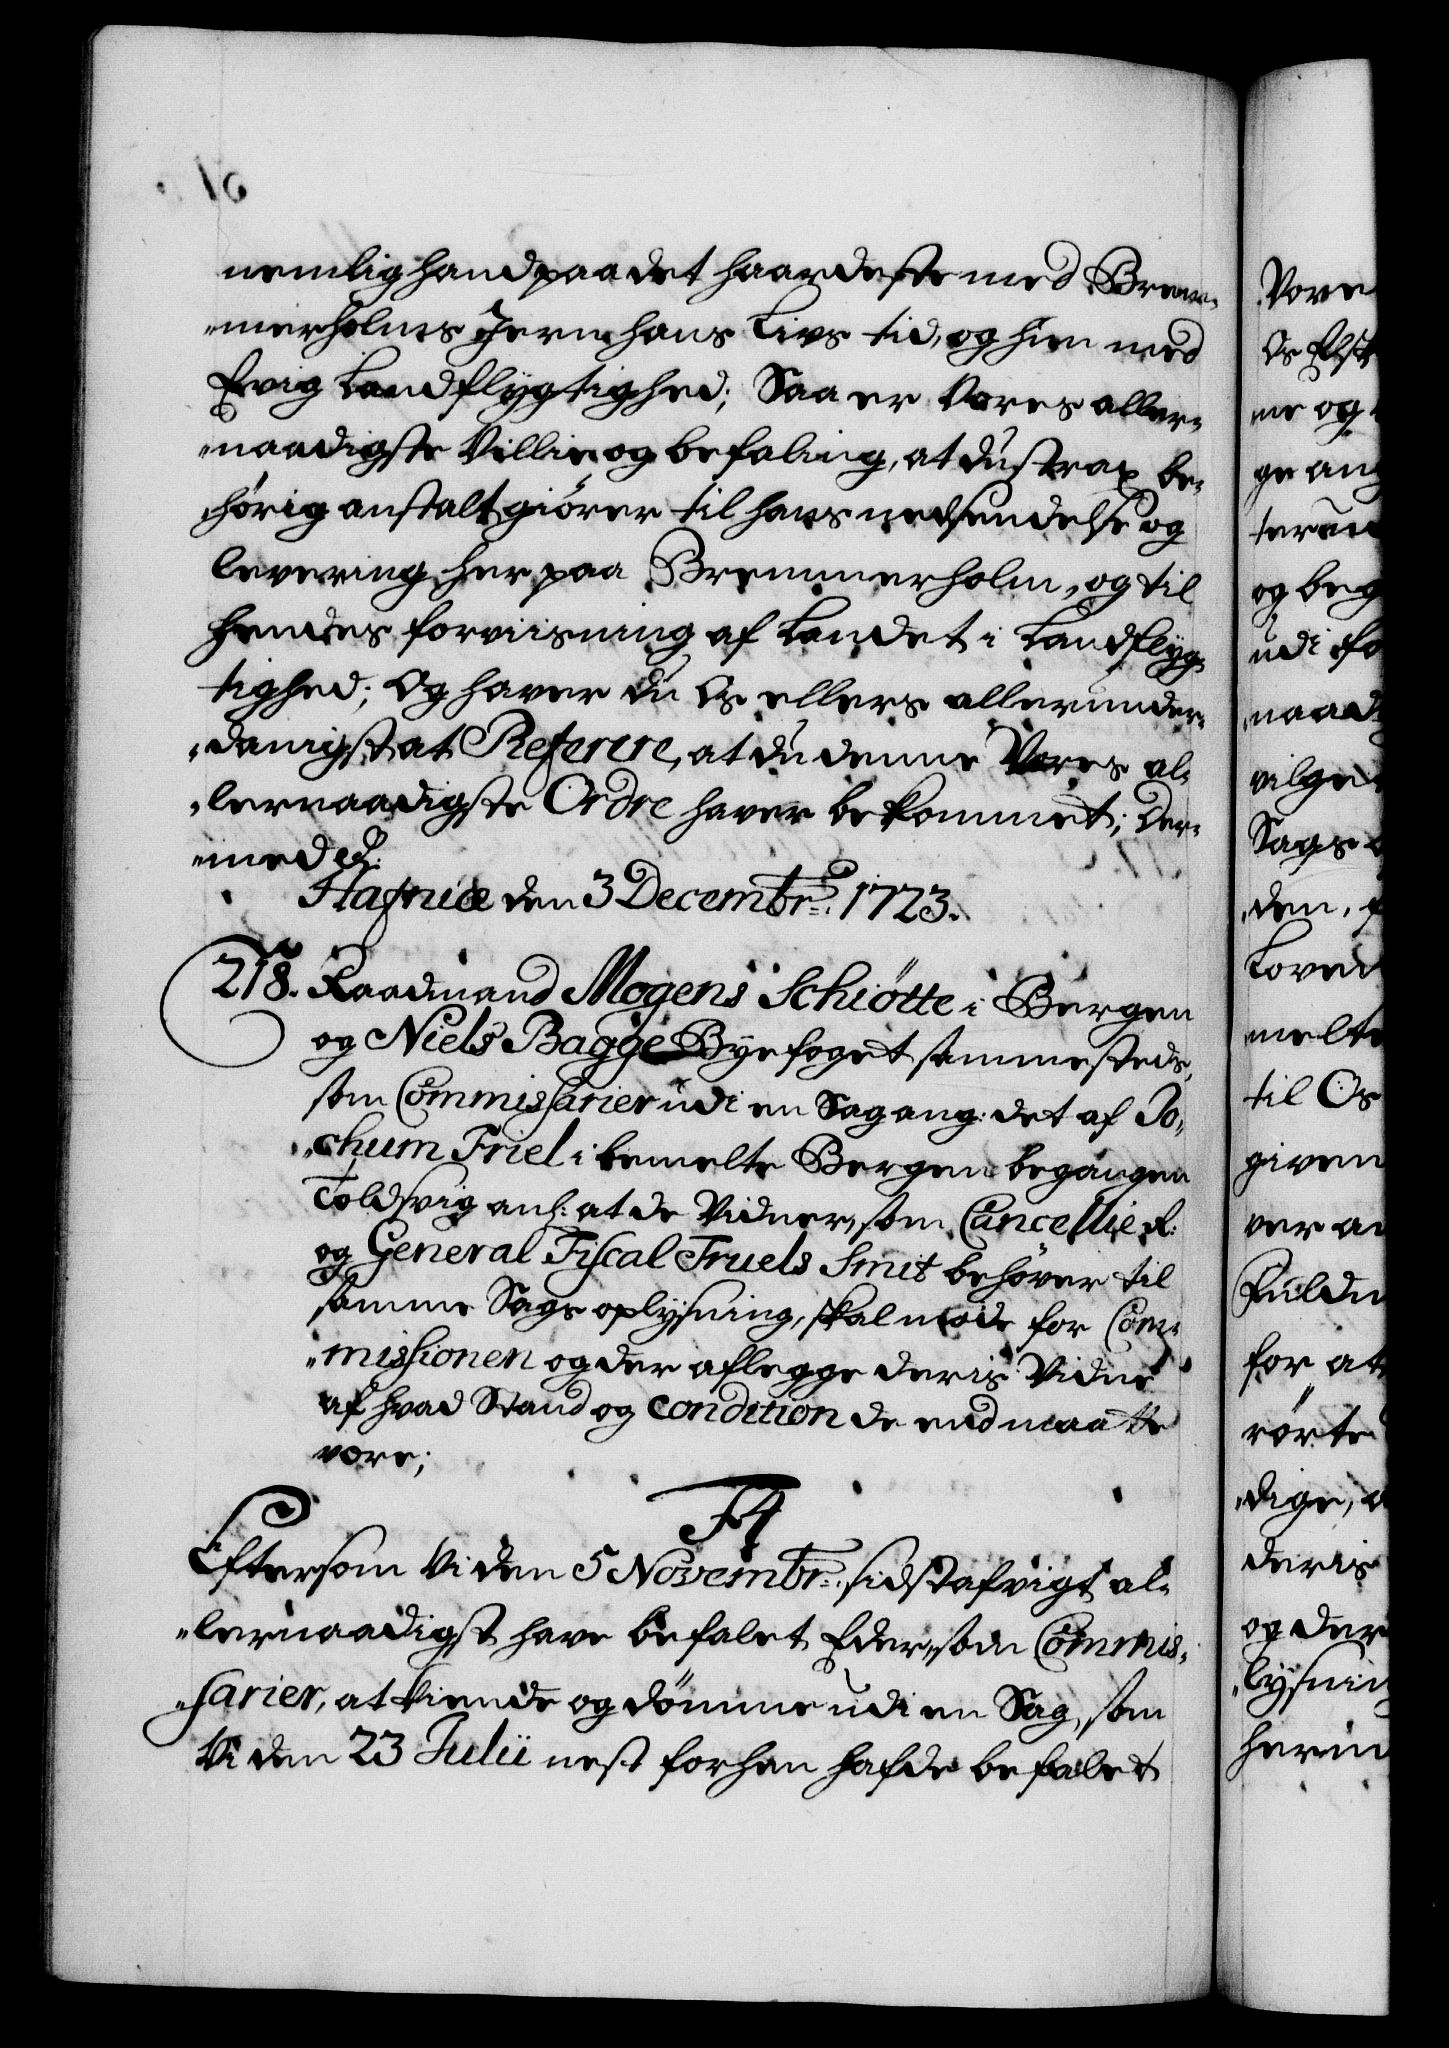 nemlig hand paa det haardeste med Brem-
merholms Jern hans Livs tid, og hun med
Evig Landflygtighed; Saa er Vores aller-
naadigste Villie og befaling, at du strax be-
hörig anstalt giörer til hans nedsendelse og
levering her paa Bremmerholm, og til
hendes forviisning af Landet i Landflyg-
tighed; Og haver du Os ellers allerunder-
danigst at Referere, at du denne Vores al-
lernaadigste Ordre haver bekommet; Der-
med etc:
Hafniæ den 3 Decembr: 1723.
218. Raadmand Mogens Schiötte i Bergen
og Niels Bagge Byefoget sammesteds,
som Commissarier udi en Sag ang: det af Jo-
chum Friel i bemelte Bergen begangen
Toldsvig anl: at de Vidner, som Cancellie R:
og General Fiscal Truels Smit behöver til
samme Sags oplysning, skal möde for Com-
missionen og der aflegge deris Vidne
af hvad Stand og Condition de end maatte
være;
F4
Eftersom Vi den 5 Novembr: sidstafvigt al-
lernaadigst have befalet Eder, som Commis-
sarier, at kiende og dömme udi en Sag, som
Vi den 23 Julii nest forhen hafde befalet
Vore
Os Elsk
me og
ge ang
terun
og beg
udi fo
naad
vilge
Sags
den,
Loven
melte
til Os
given
ver an
Fulde
for at
rörte
dige,
deris
og der
lysning
herin